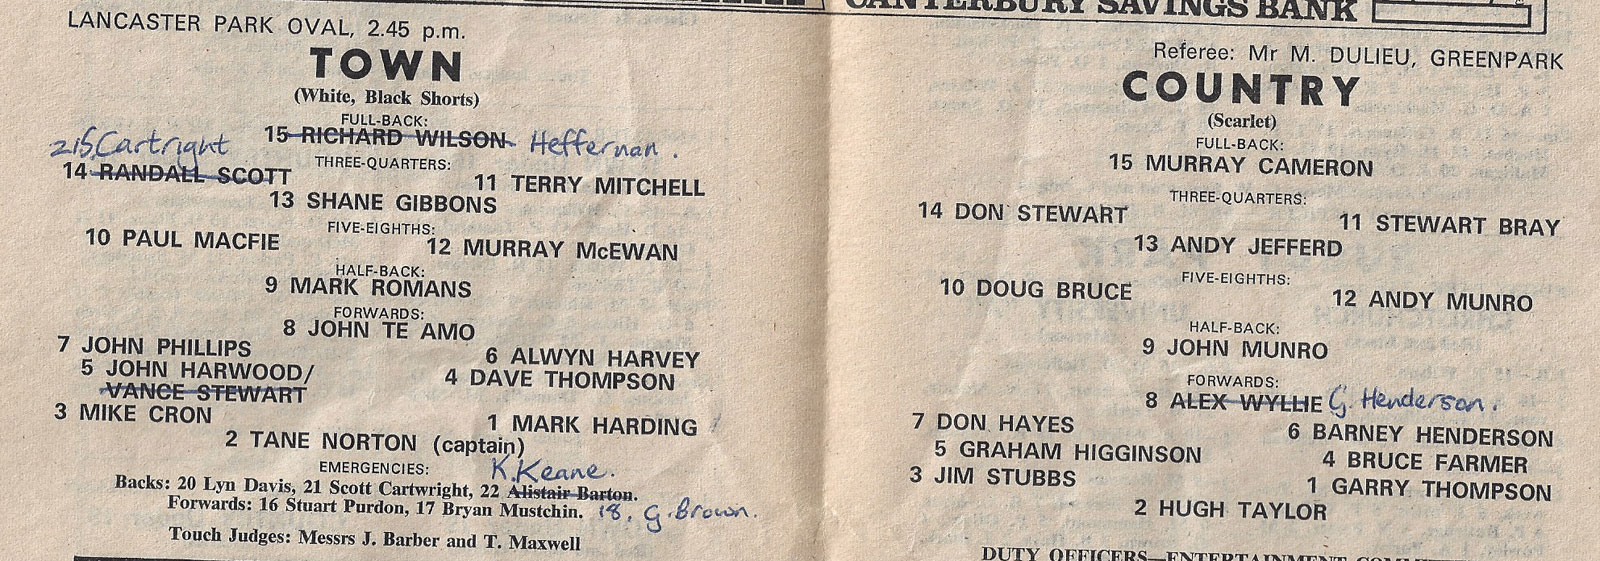 CANTERBURY SAVINGS BANK
LANCASTER PARK OVAL, 2.45 p.m.
TOWN
(White, Black Shorts)
FULL-BACK:
15 RICHARD WILSON Heffernan.
21 S. Cartright
THREE-QUARTERS:
14 RANDALL SCOTT
11 TERRY MITCHELL
13 SHANE GIBBONS
FIVE-EIGHTHS:
10 PAUL MACFIE
12 MURRAY McEWAN
HALF-BACK:
9 MARK ROMANS
FORWARDS:
8 JOHN TE AMO
7 JOHN PHILLIPS
6 ALWYN HARVEY
5 JOHN HARWOOD/
VANCE STEWART
4 DAVE THOMPSON
3 MIKE CRON
1 MARK HARDING
2 TANE NORTON (captain)
EMERGENCIES:
K. Keane.
Backs: 20 Lyn Davis, 21 Scott Cartwright, 22 Alistair Barton.
Forwards: 16 Stuart Purdon, 17 Bryan Mustchin. 18. G. Brown.
Touch Judges: Messrs J. Barber and T. Maxwell
Referee: Mr M. DULIEU, GREENPARK
COUNTRY
(Scarlet)
FULL-BACK:
15 MURRAY CAMERON
THREE-QUARTERS:
14 DON STEWART
11 STEWART BRAY
13 ANDY JEFFERD
FIVE-EIGHTHS:
10 DOUG BRUCE
12 ANDY MUNRO
HALF-BACK:
9 JOHN MUNRO
FORWARDS:
8 ALEX WYLLIE G. Henderson.
7 DON HAYES
6 BARNEY HENDERSON
5 GRAHAM HIGGINSON
4 BRUCE FARMER
3 JIM STUBBS
1 GARRY THOMPSON
2 HUGH TAYLOR
DUTY OFFICERS—ENTERTAINMENT